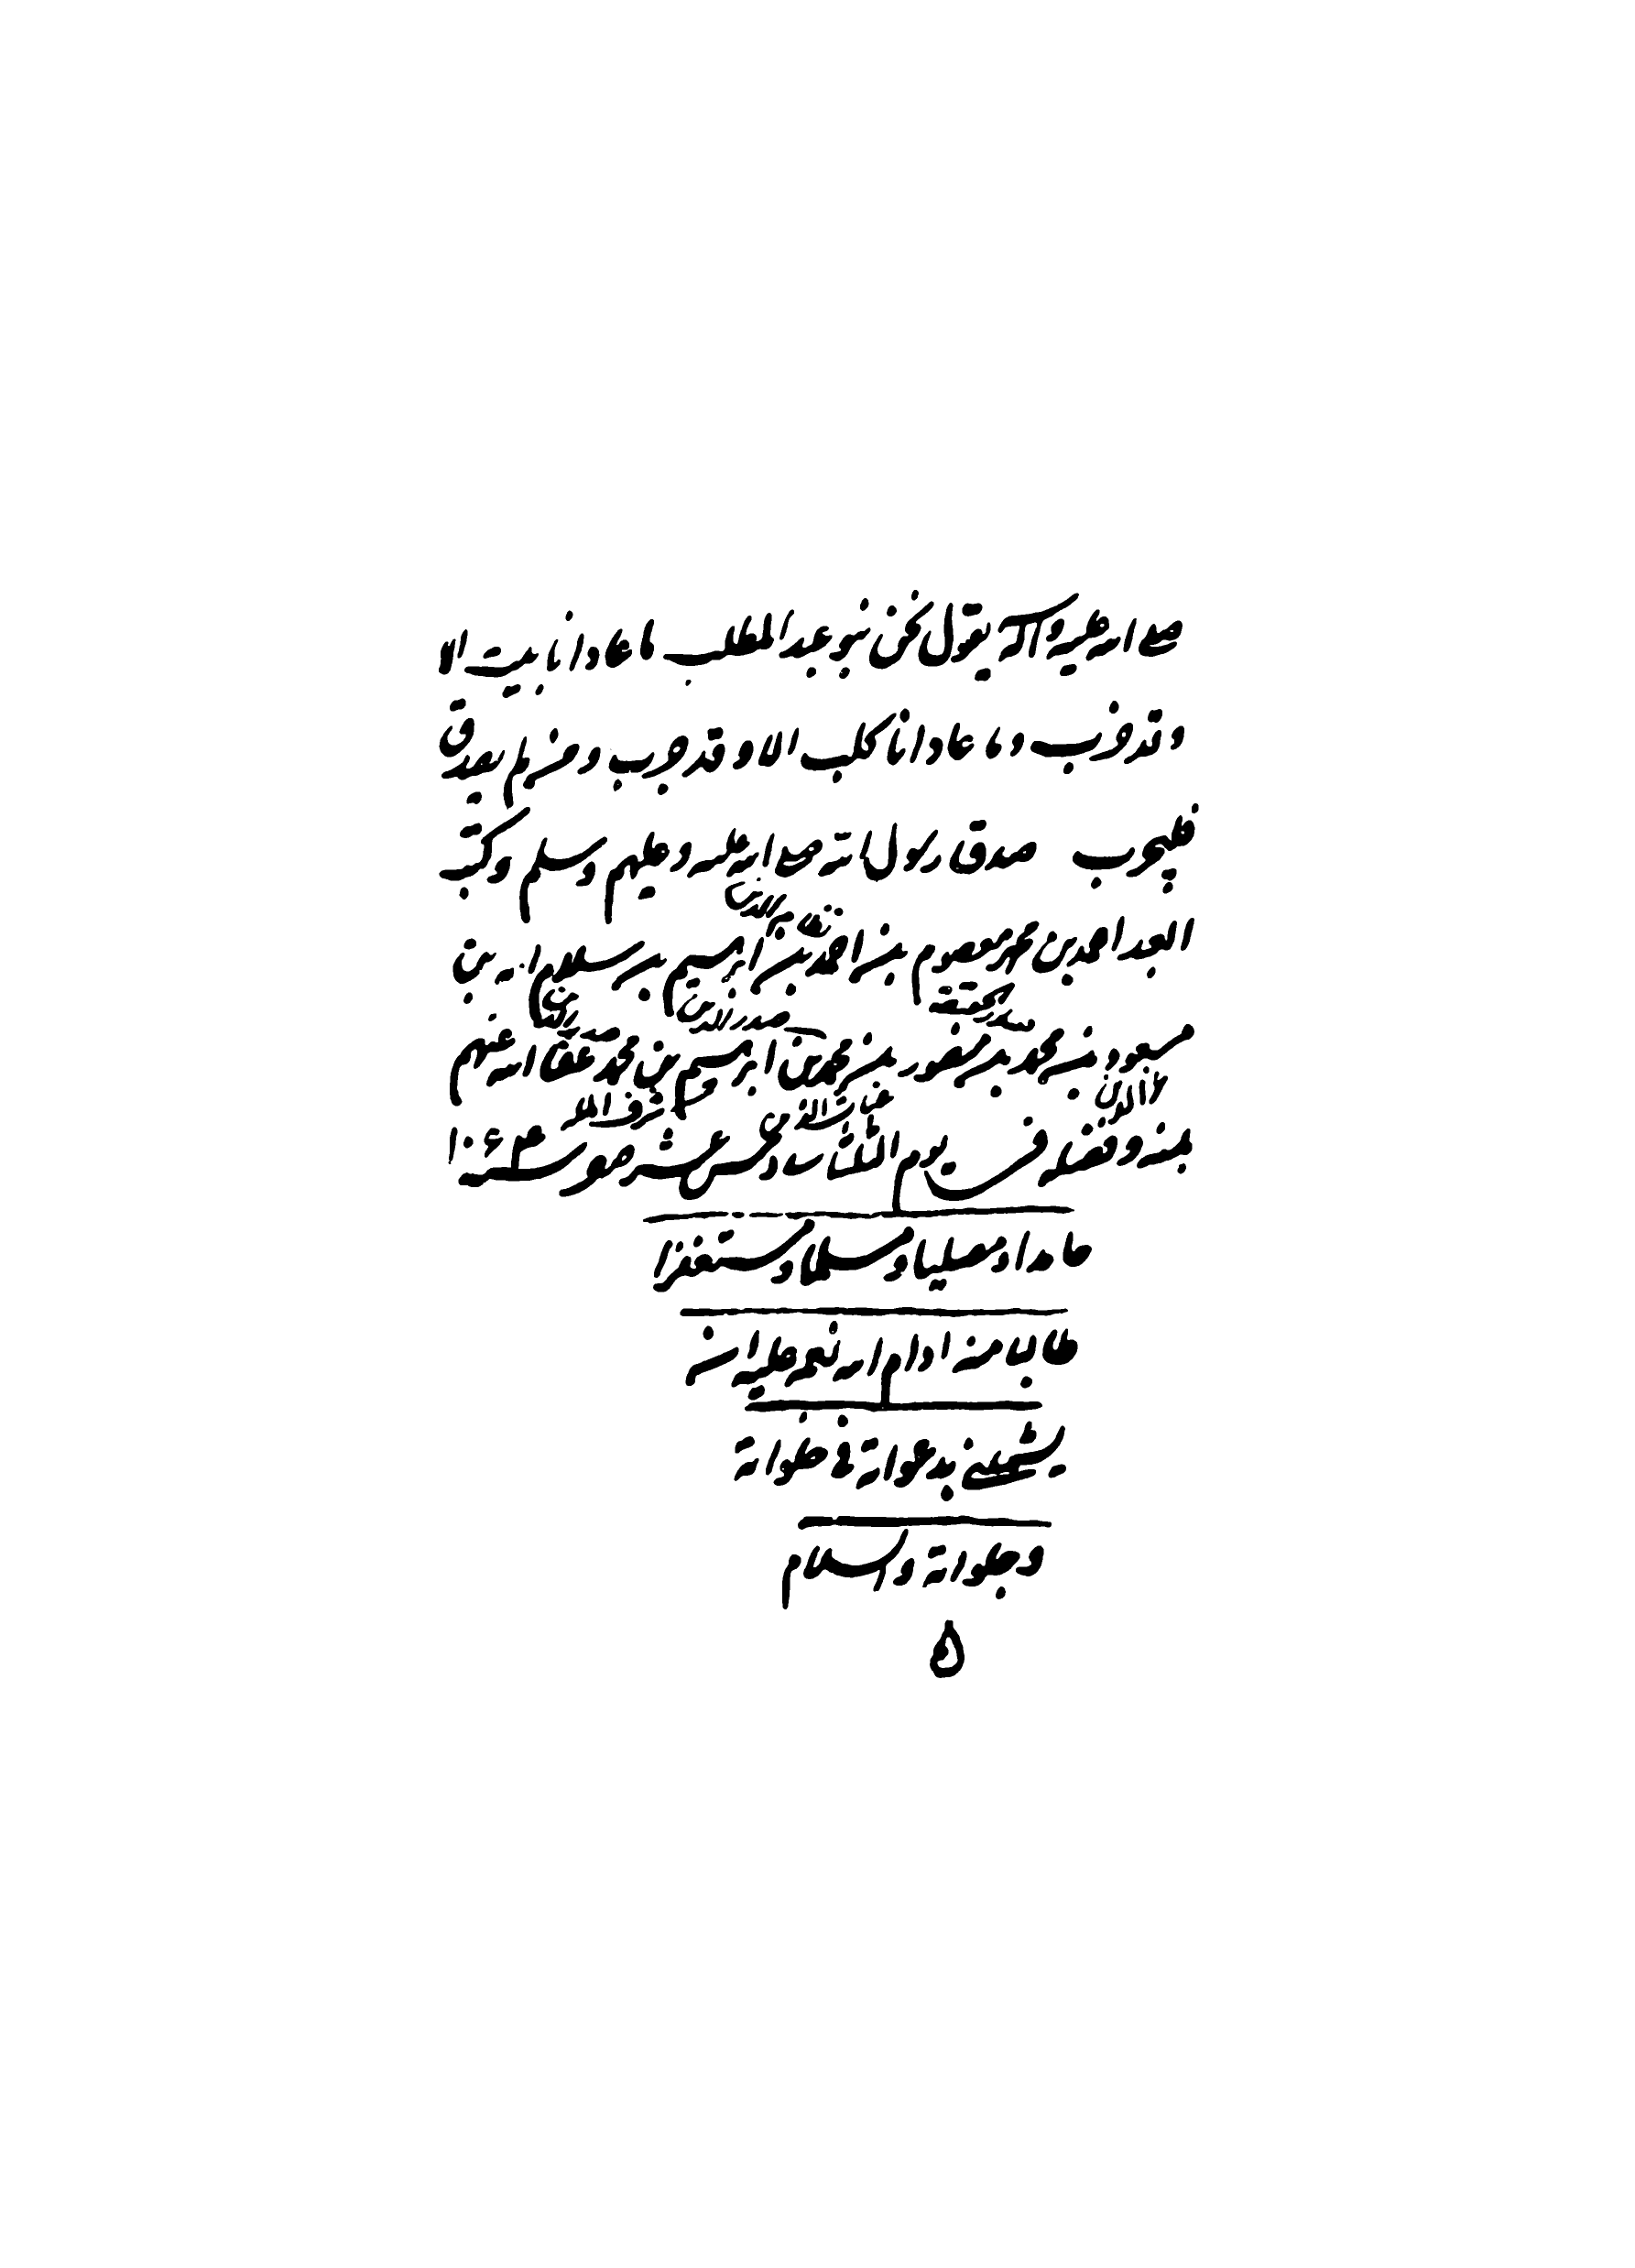 صلى الله عليه وآله يقول نحن بنو عبد المطلب ما عادانا بيت الا
وقد خرب وما عادانا كلب الا وقد جرب ومن لم يصدق
فليجرب صدق رسول الله صلى الله عليه وعليهم وسلم وكتب
نظام الدين
العبد احمد بن محمد معصوم بن احمد بن ابرهيم بن سلام الله بن
مسعود بن محمد بن منصور بن محمد بن ابرهيم بن محمد عفا الله عنهم
صدر الدين
عز الدين
غياث الدين
شرف المله
بمنه وفضله في يوم الثلاثاء سادس عشر صفر سنة ١٠٦٤
حامدا ومصليا ومسلما ومستغفرا
طالبا منه ادام الله نعمه عليه انه
يشملني بدعواته في خلواته
وجلواته والسلام